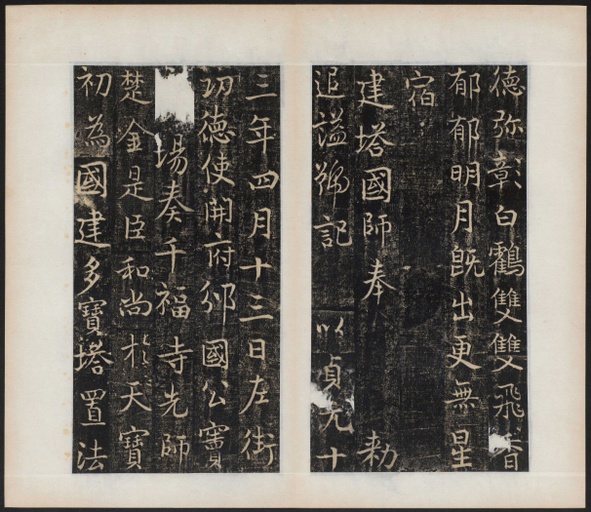 德弥彰白鸖雙雙飛香
郁郁明月旣出更無星
宿
建塔國師奉 勅
追謚號記 以貞元十
三年四月十三日左街
功德使開府邠國公竇
場奏千福寺先師
楚金是臣和尚於天寶
初為國建多寶塔置法